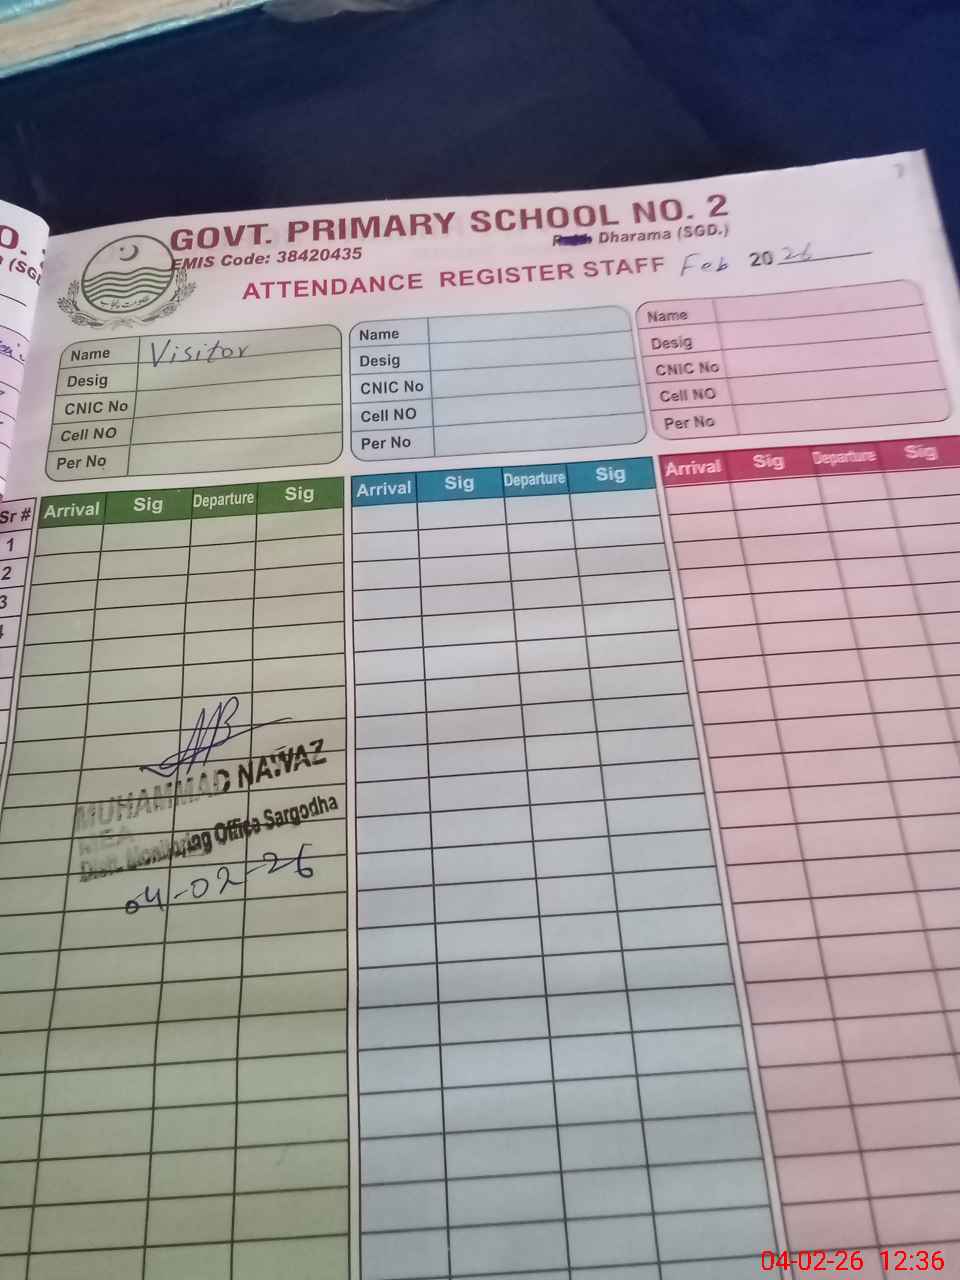 GOVT. PRIMARY SCHOOL NO. 2
Dharama (SGD.)
EMIS Code: 38420435
ATTENDANCE REGISTER STAFF Feb 2026
Name Visitor
Desig
CNIC No
Cell NO
Per No
Name
Desig
CNIC No
Cell NO
Per No
Name
Desig
CNIC No
Cell NO
Per No
Sr # Arrival Sig Departure Sig Arrival Sig Departure Sig Arrival Sig Departure Sig
1
2
3
4
MUHAMMAD NAWAZ
MEA
Distt. Monitoring Office Sargodha
04-02-26
04-02-26 12:36